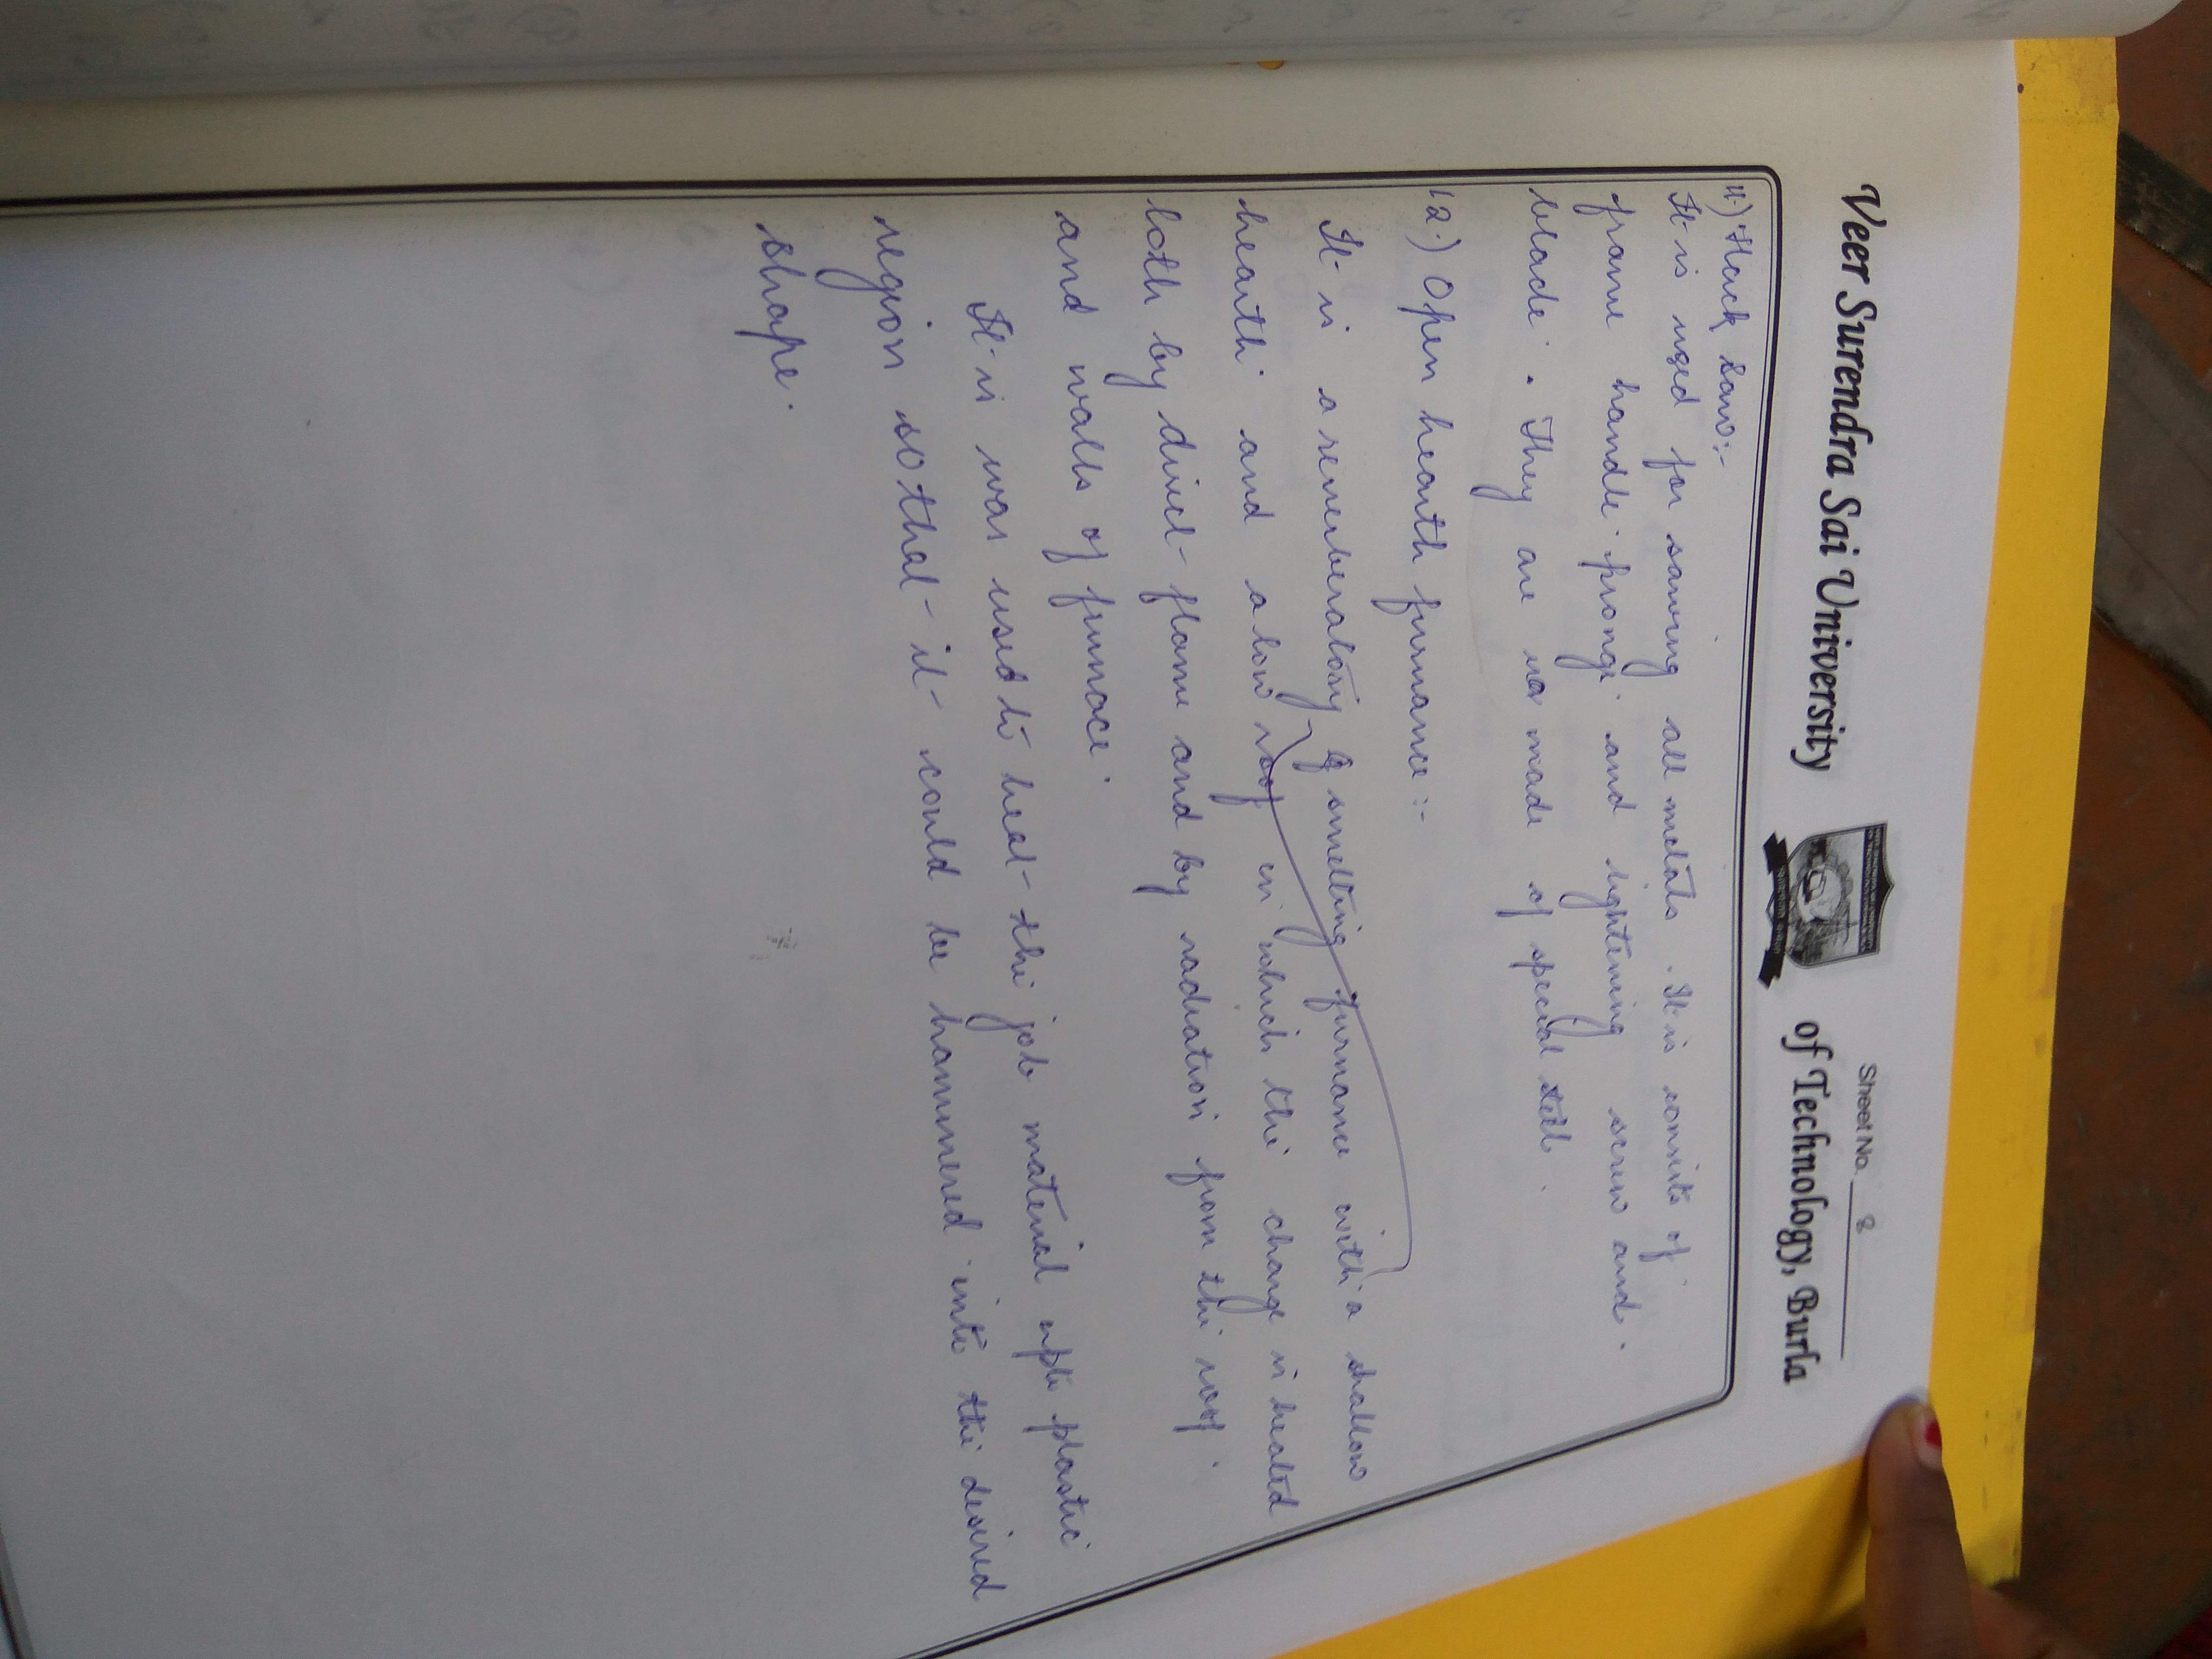 Sheet No. 8
Veer Surendra Sai University of Technology, Burla
11) Hack saw:-
It is used for sawing all metals. It is consists of
frame handle prongs and tightening screw and
blade. They are made of special steel.
12.) Open hearth furnance:-
It is a reverberatory smelting furnance with a shallow
hearth and a low roof in which the charge is heated
both by direct flame and by radiation from the roof
and walls of furnace.
It is was used to heat the job material upto plastic
region so that it could be hammered into the desired
shape.